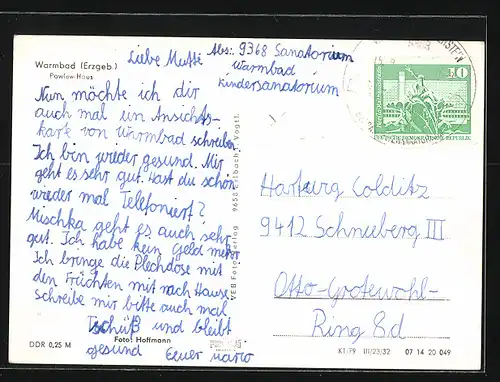 Warmbad (Erzgeb.)
Pawlow-Haus
Liebe Mutti
Abs.: 9368 Sanatorium
Warmbad
Kindersanatorium
Nun möchte ich dir
auch mal ein Ansichts-
karte von Warmbad schreiben
Ich bin wieder gesund. Mir
geht es sehr gut. Hast du schon
wieder mal Telefoniert?
Mischka geht es auch sehr
gut. Ich habe kein Geld mehr
Ich bringe die Plechdose mit
den Früchten mit nach Hause
schreibe mir bitte auch mal
Tschüß und bleibt
gesund Eeuer
VEB Foto-Verlag 9658 Erlbach i. Vogtl.
10
DEUTSCHE DEMOKRATISCHE REPUBLIK
Hartwig Colditz
9412 Schneeberg III
Otto-Grotewohl-
Ring 8d
DDR 0,25 M
Foto: Hoffmann
K1/79 III/23/32 07 14 20 049